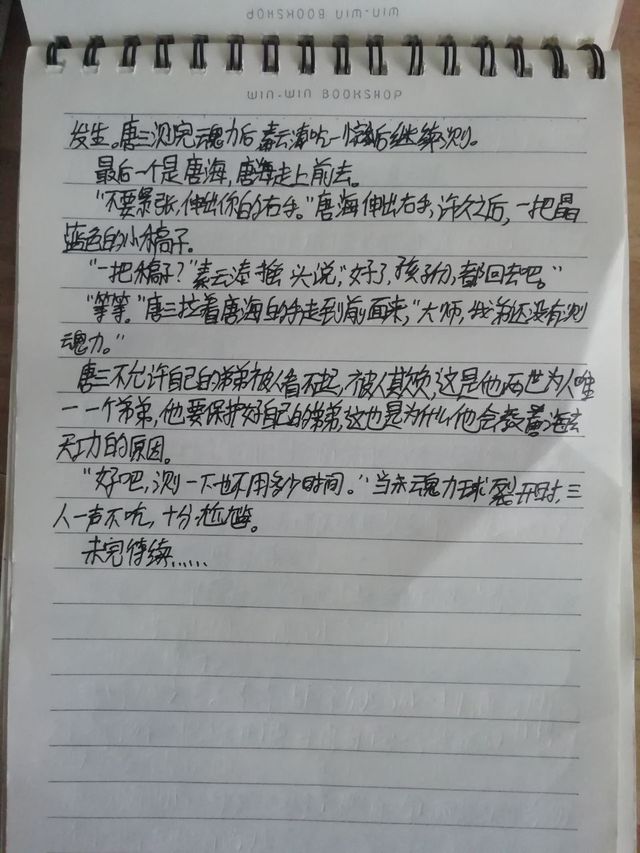 WIN-WIN BOOKSHOP
WIN-WIN BOOKSHOP
发生。唐三测完魂力后素云涛吃一惊后继续测。
最后一个是唐海,唐海走上前去。
“不要紧张,伸出你的右手。”唐海伸出右手,许久之后,一把晶
蓝色的小稿子。
“一把稿子?”素云涛摇头说,“好了,孩子们,都回去吧。”
“等等。”唐三拉着唐海的手走到前面来,“大师,我弟还没有测
魂力。”
唐三不允许自己的弟弟被人看不起,被人欺负,这是他两世为人唯
一一个弟弟,他要保护好自己的弟弟,这也是为什么他会教黄海玄
天功的原因。
“好吧,测一下也不用多少时间。”当
魂力球裂开时,三
人一声不吭,十分尴尬。
未完待续……